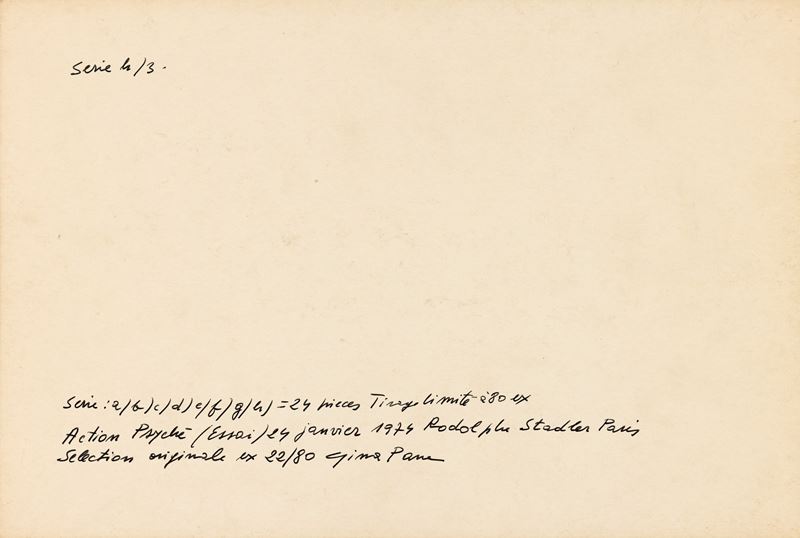 Serie h/3.
Serie : a) b) c) d) e) f) g) h) = 24 pieces Tirage limité à 80 ex
Action Psyché (Essai) 24 janvier 1974 Rodolphe Stadler Paris
Selection originale ex 22/80 Gina Pane